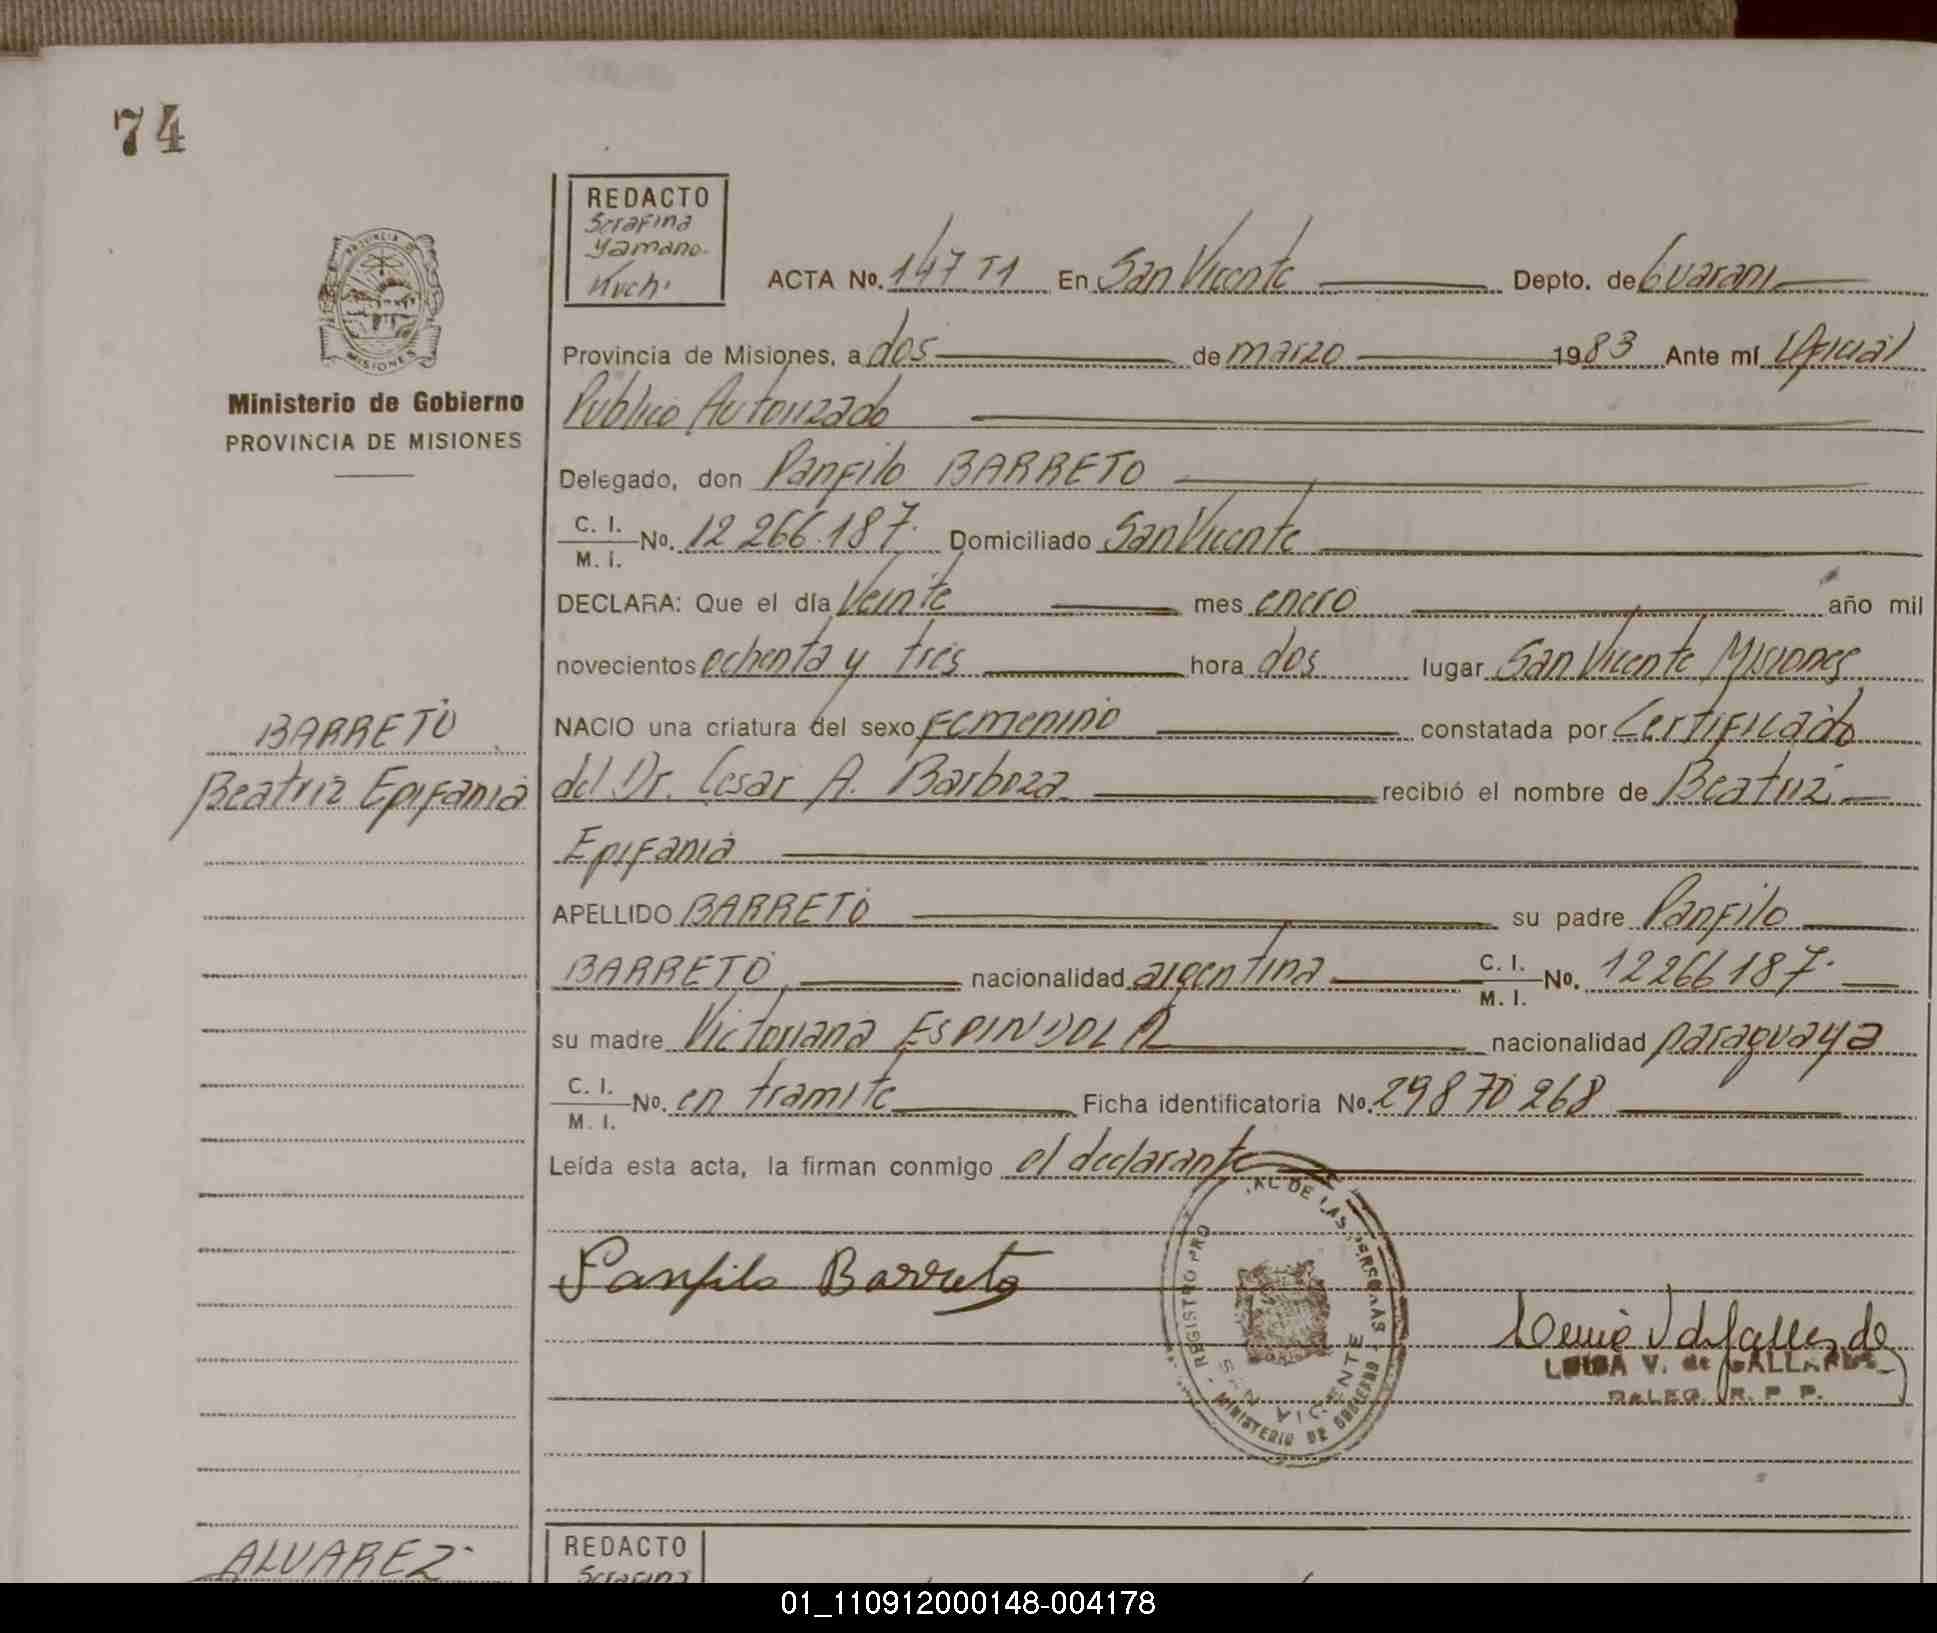 74
REDACTO
Serafina
Yamano.
Kuch.
ACTA No. 147 T1 En San Vicente Depto. de Guarani
Provincia de Misiones, a dos de marzo 1983 Ante mí Oficial
Publico Autorizado
Delegado, don Panfilo BARRETO
C. I.
M. I. No. 12 266.187. Domiciliado San Vicente
DECLARA: Que el día Veinte mes enero año mil
novecientos ochenta y tres hora dos lugar San Vicente Misiones
NACIO una criatura del sexo Femenino constatada por Certificado
del Dr. Cesar A. Barboza recibió el nombre de Beatriz
Epifania
APELLIDO BARRETO su padre Panfilo
BARRETO nacionalidad argentina C. I.
M. I. No. 12266187.
su madre Victoriana ESPINDOLA nacionalidad paraguaya
C. I.
M. I. No. en tramite Ficha identificatoria No. 29870268
Leída esta acta, la firman conmigo el declarante
Panfilo Barreto
REGISTRO PRO AL DE LAS PERSONAS
MINISTERIO DE GOBIERNO
SAN VICENTE
LUISA V. de
DELEG. R. P. P.
PROVINCIA DE
MISIONES
Ministerio de Gobierno
PROVINCIA DE MISIONES
BARRETO
Beatriz Epifania
ALVAREZ
REDACTO
Serafina
01_110912000148-004178